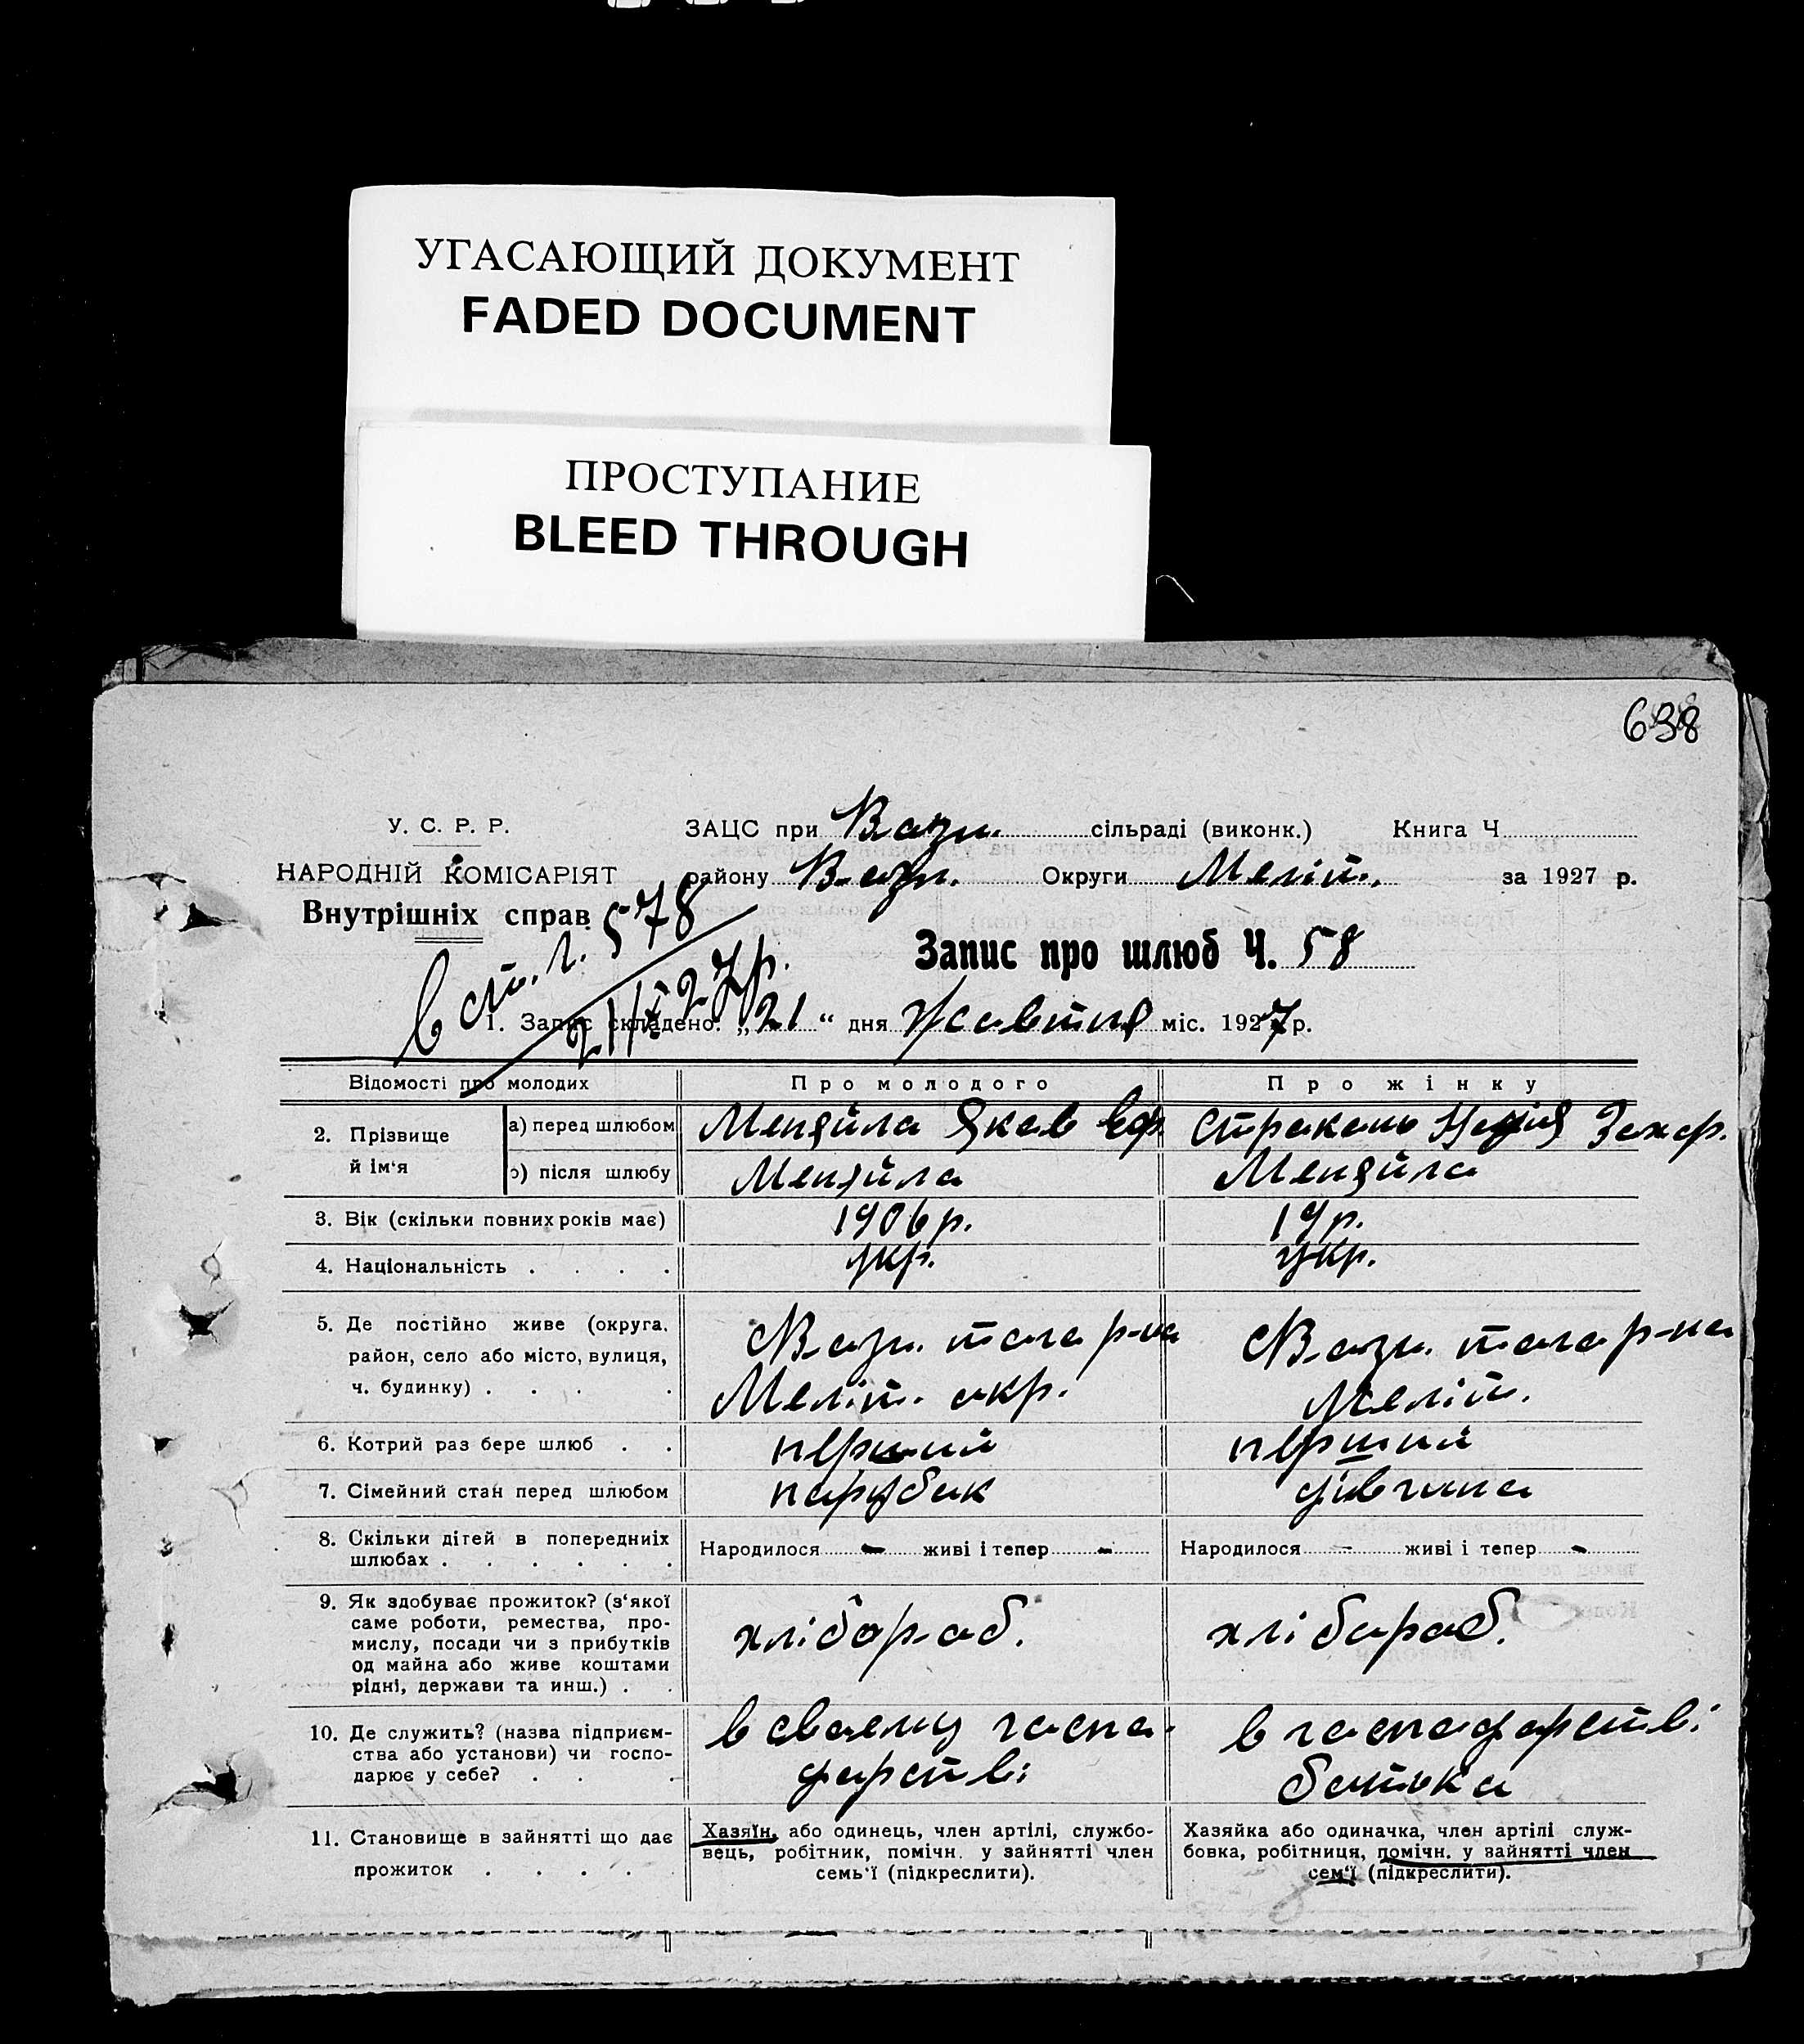 УГАСАЮЩИЙ ДОКУМЕНТ
FADED DOCUMENT
ПРОСТУПАНИЕ
BLEED THROUGH
638
У. С. Р. Р.
НАРОДНІЙ КОМІСАРІЯТ
Внутрішніх справ
ЗАЦС при Вазн. сільраді (виконк.) Книга Ч
району Вазн. Округи Меліт. за 1927 р.
в ст. г. 578
21/X 27р.
Запис про шлюб Ч. 58
1. Запис складено: „21“ дня Жовтня міс. 1927 р.
Відомості про молодих Про молодого Про жінку
2. Прізвище й ім‘я
а) перед шлюбом Меняйла Яков Еф. Стракань Надія Захар.
б) після шлюбу Меняйла Меняйла
3. Вік (скільки повних років має) 1906 р. 19 р.
4. Національність . . . . укр. укр.
5. Де постійно живе (округа, район, село або місто, вулиця, ч. будинку) . . . .
Вазн. того р-на
Меліт. окр.
Вазн. того р-на
Меліт.
6. Котрий раз бере шлюб . . перший перший
7. Сімейний стан перед шлюбом парубак дівчина
8. Скільки дітей в попередниіх
шлюбах . . . . . .
Народилося - живі і тепер -
Народилося - живі і тепер -
9. Як здобуває прожиток? (з‘якої
саме роботи, ремества, про-
мислу, посади чи з прибутків
од майна або живе коштами
рідні, держави та инш.) . .
хлібороб.
хлібороб.
10. Де служить? (назва підприєм-
ства або установи) чи госпо-
дарює у себе? . . .
в своєму госпо-
дарстві
в господарстві
батька
11. Становище в зайнятті що дає
прожиток . . . .
Хазяїн, або одинець, член артілі, службо-
вець, робітник, помічн. у зайнятті член
семь‘ї (підкреслити).
Хазяйка або одиначка, член артілі служ-
бовка, робітниця, помічн. у зайнятті член
сем‘ї (підкреслити).